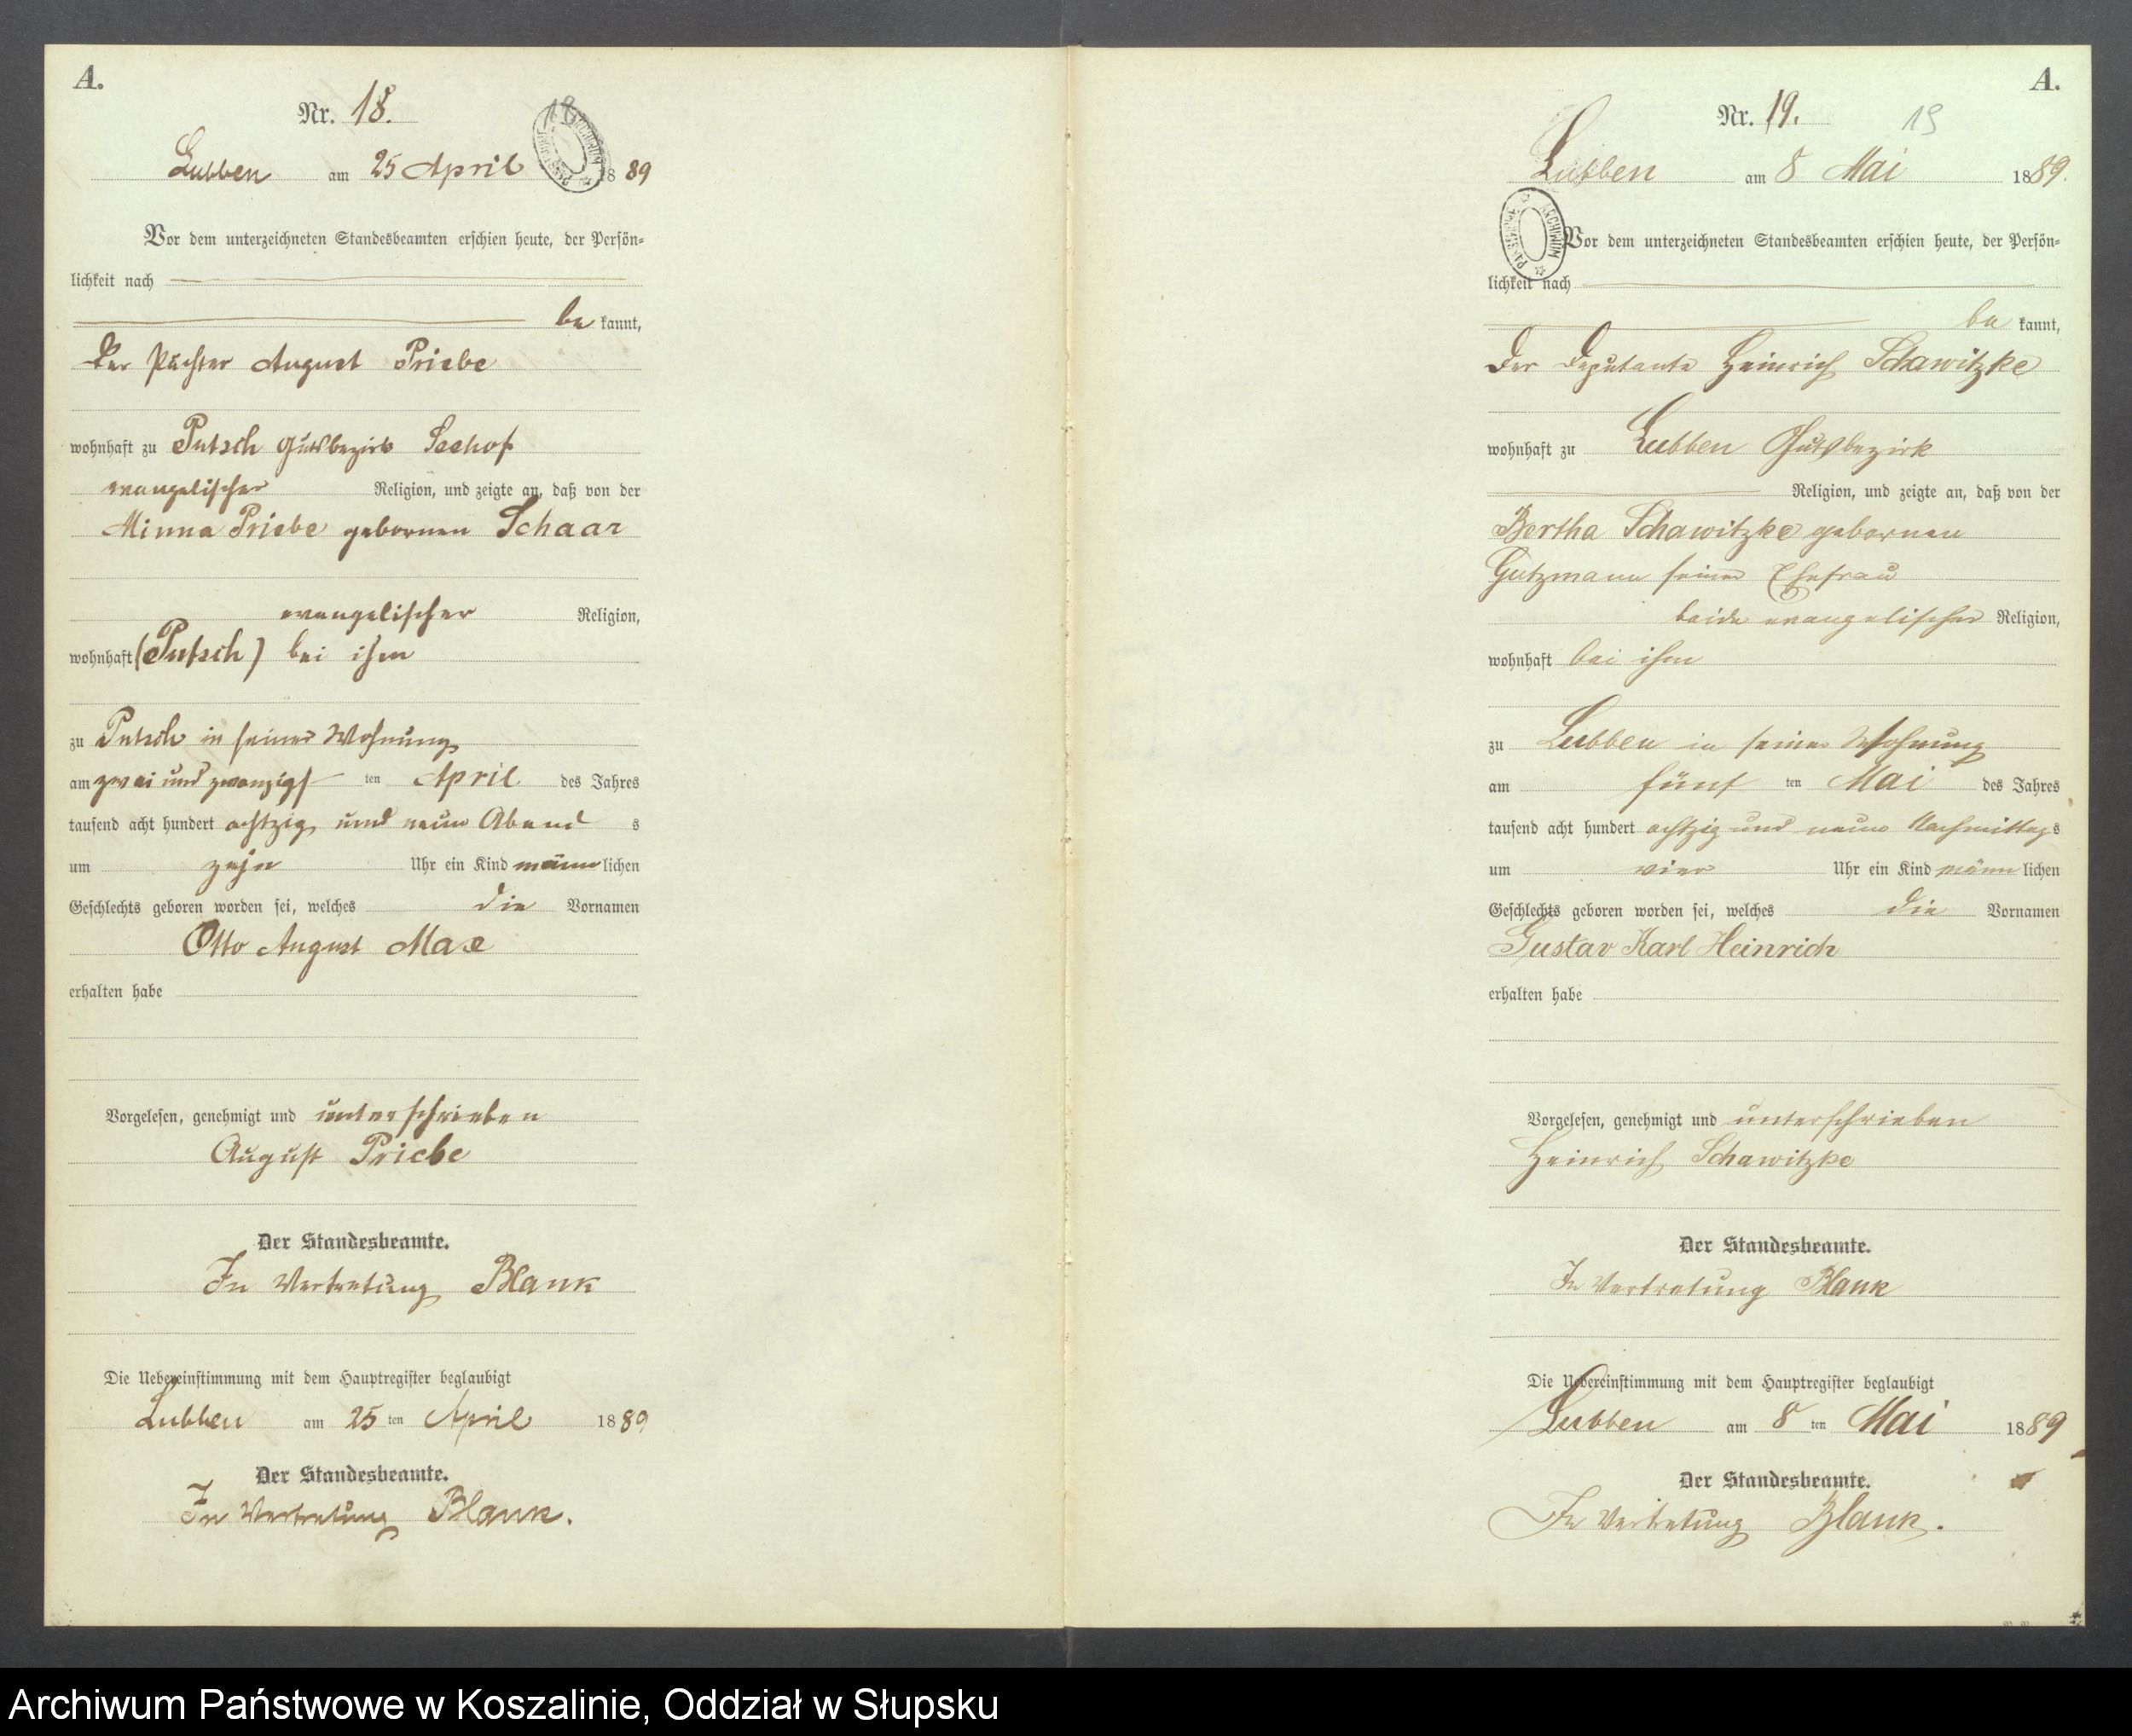 A.
Nr. 18.
18
Lubben am 25 April 1889
Vor dem unterzeichneten Standesbeamten erschien heute, der Persön-
lichkeit nach
be kannt,
Der Pächter August Priebe
wohnhaft zu Putsch Gutsbezirk Seehof
evangelischer Religion, und zeigte an, daß von der
Minna Priebe gebornen Schaar
evangelischer Religion,
wohnhaft (Putsch) bei ihm
zu Putsch in seiner Wohnung
am zwei und zwanzigsten April des Jahres
tausend acht hundert achtzig und neun Abends
um zehn Uhr ein Kind männlichen
Geschlechts geboren worden sei, welches die Vornamen
Otto August Max
erhalten habe
Vorgelesen, genehmigt und unterschrieben
August Priebe
Der Standesbeamte.
In Vertretung Blank
Die Uebereinstimmung mit dem Hauptregister beglaubigt
Lubben am 25 ten April 1889
Der Standesbeamte.
In Vertretung Blank.
A.
Nr. 19.
19
Lubben am 8 Mai 1889.
ARCHIWUM
Vor dem unterzeichneten Standesbeamten erschien heute, der Persön-
lichkeit nach
be kannt,
Der Deputante Heinrich Schawitzke
wohnhaft zu Lubben Gutsbezirk
Religion, und zeigte an, daß von der
Bertha Schawitzke gebornen
Gutzmann seiner Ehefrau
beide evangelischer Religion,
wohnhaft bei ihm
zu Lubben in seiner Wohnung
am fünf ten Mai des Jahres
tausend acht hundert achtzig und neun Nachmittags
um vier Uhr ein Kind männlichen
Geschlechts geboren worden sei, welches die Vornamen
Gustav Karl Heinrich
erhalten habe
Vorgelesen, genehmigt und unterschrieben
Heinrich Schawitzke
Der Standesbeamte.
In Vertretung Blank
Die Uebereinstimmung mit dem Hauptregister beglaubigt
Lubben am 8 ten Mai 1889
Der Standesbeamte.
In Vertretung Blank.
Archiwum Państwowe w Koszalinie, Oddział w Słupsku